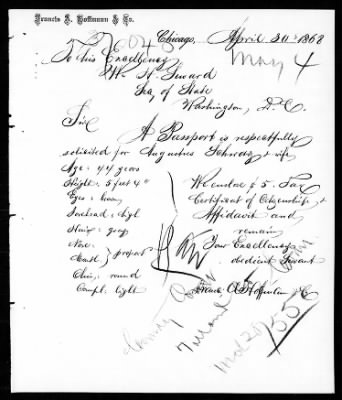 Francis A. Hoffmann & Co.
Chicago, April 30th 1868
May 4
To His Excellency
Wm H. Seward
Secy of State
Washington, D.C.
Sir
A Passport is respectfully
solicited for Augustus Schwarz & wife
Age: 44 years
Hight: 5 feet 4"
Eyes:
Forehead: high
Hair: gray
Nose
Mouth } proper
Chin: round
Compl. light
We enclose $5. Tax
Certificate of Citizenship &
Affidavit and
remain
Your Excellency
obedient Servant
Francis A Hoffmann & C